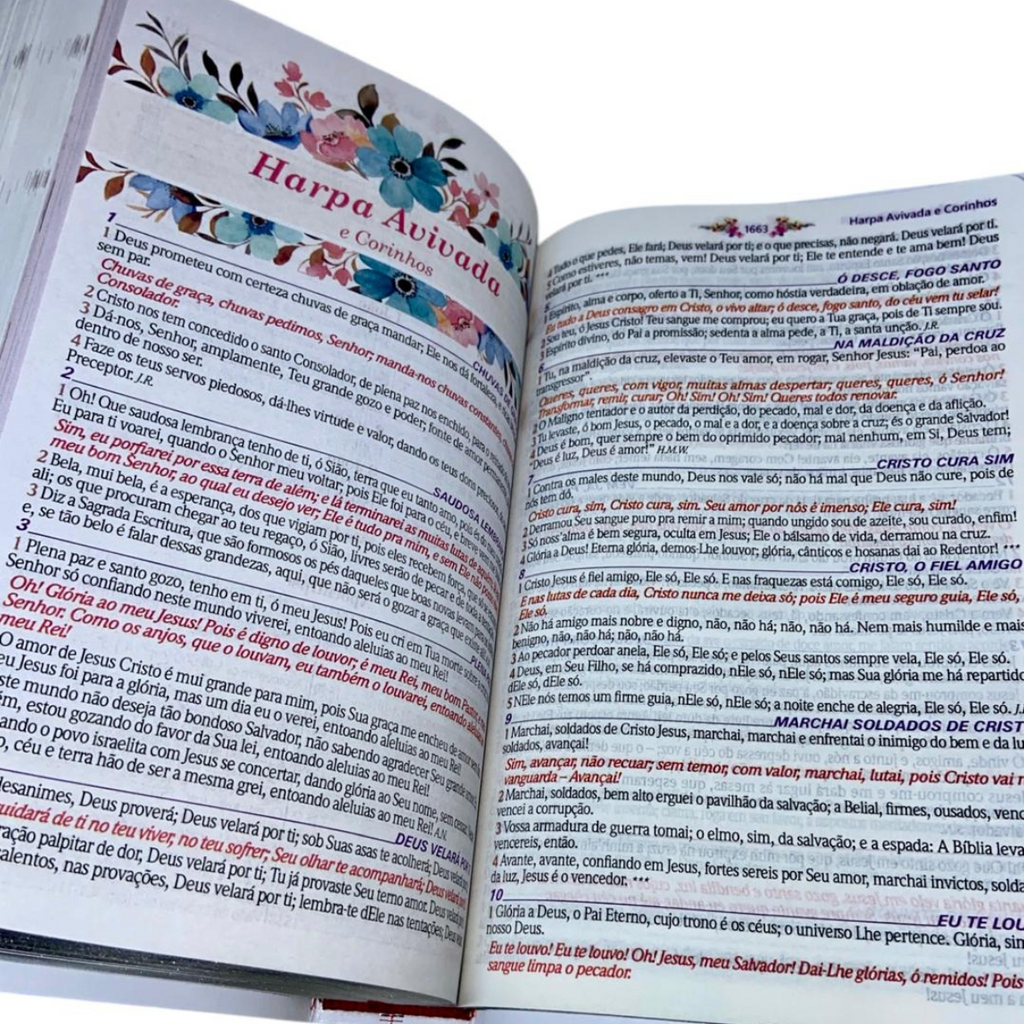 Harpa Avivada
e Corinhos
1
CHUVAS
1 Deus prometeu com certeza chuvas de graça mandar; Ele nos dá fortaleza, e
sem par.
Chuvas de graça, chuvas pedimos, Senhor; manda-nos chuvas constantes,
Consolador.
2 Cristo nos tem concedido o santo Consolador, de plena paz nos enchido, para o
3 Dá-nos, Senhor, amplamente, Teu grande gozo e poder; fonte de amor
dentro de nosso ser.
4 Faze os teus servos piedosos, dá-lhes virtude e valor, dando os teus dons preciosos,
Preceptor. J.R.
2
SAUDOSA
1 Oh! Que saudosa lembrança tenho de ti, ó Sião, terra que eu tanto amo, pois
Eu para ti voarei, quando o Senhor meu voltar; pois Ele foi para o céu, e breve
Sim, eu porfiarei por essa terra de além; e lá terminarei as muitas lutas de
meu bom Senhor, ao qual eu desejo ver; Ele é tudo pra mim, e sem Ele não
2 Bela, mui bela, é a esperança, dos que vigiam por ti, pois eles recebem força,
ali; os que procuram chegar ao teu regaço, ó Sião, livres serão de pecar e de toda a
3 Diz a Sagrada Escritura, que são formosos os pés daqueles que boas novas levam
e, se tão belo é falar dessas grandezas, aqui, que não será o gozar a graça que existe
3
1 Plena paz e santo gozo, tenho em ti, ó meu Jesus! Pois eu cri em Tua morte
Senhor só confiando neste mundo viverei, entoando aleluias ao meu Rei!
Oh! Glória ao meu Jesus! Pois é digno de louvor; é meu Rei, meu bom Pastor,
Senhor. Como os anjos, que o louvam, eu também o louvarei, entoando
meu Rei!
O amor de Jesus Cristo é mui grande para mim, pois Sua graça me encheu de amor
eu Jesus foi para a glória, mas um dia eu o verei, entoando aleluias ao meu Rei!
ste mundo não deseja tão bondoso Salvador, não sabendo agradecer Seu grande
ém, estou gozando do favor da Sua lei, entoando aleluias ao meu Rei!
ando o povo israelita com Jesus se concertar, dando glória ao Seu nome, sem cessar,
o, céu e terra hão de ser a mesma grei, entoando aleluias ao meu Rei! A.N.
DEUS VELARÁ POR
desanimes, Deus proverá; Deus velará por ti; sob Suas asas te acolherá; Deus velará
cuidará de ti no teu viver, no teu sofrer; Seu olhar te acompanhará; Deus velará
ração palpitar de dor, Deus velará por ti; Tu já provaste Seu terno amor. Deus velará
talentos, nas provações, Deus velará por ti; lembra-te dEle nas tentações; Deus
1663 Harpa Avivada e Corinhos
4 Tudo o que pedes, Ele fará; Deus velará por ti; e o que precisas, não negará. Deus velará por ti.
5 Como estiveres, não temas, vem! Deus velará por ti; Ele te entende e te ama bem! Deus
velará por ti. ***
Ó DESCE, FOGO SANTO
1 Espírito, alma e corpo, oferto a Ti, Senhor, como hóstia verdadeira, em oblação de amor.
Eu tudo a Deus consagro em Cristo, o vivo altar; ó desce, fogo santo, do céu vem tu selar!
2 Sou teu, ó Jesus Cristo! Teu sangue me comprou; eu quero a Tua graça, pois de Ti sempre sou.
3 Espírito divino, do Pai a promissão; sedenta a alma pede, a Ti, a santa unção. J.R.
6
NA MALDIÇÃO DA CRUZ
1 Tu, na maldição da cruz, elevaste o Teu amor, em rogar, Senhor Jesus: “Pai, perdoa ao
transgressor”.
Queres, queres, com vigor, muitas almas despertar; queres, queres, ó Senhor!
Transformar, remir, curar; Oh! Sim! Oh! Sim! Queres todos renovar.
2 O Maligno tentador e o autor da perdição, do pecado, mal e dor, da doença e da aflição.
3 Tu levaste, ó bom Jesus, o pecado, o mal e a dor, e a doença sobre a cruz; és o grande Salvador!
4 Deus é bom, quer sempre o bem do oprimido pecador; mal nenhum, em Si, Deus tem;
“Deus é luz, Deus é amor!” H.M.W.
7
CRISTO CURA SIM
1 Contra os males deste mundo, Deus nos vale só; não há mal que Deus não cure, pois de
nós tem dó.
Cristo cura, sim, Cristo cura, sim. Seu amor por nós é imenso; Ele cura, sim!
2 Derramou Seu sangue puro pra remir a mim; quando ungido sou de azeite, sou curado, enfim!
3 Só noss'alma é bem segura, oculta em Jesus; Ele o bálsamo de vida, derramou na cruz.
4 Glória a Deus! Eterna glória, demos-Lhe louvor; glória, cânticos e hosanas dai ao Redentor! ***
8
CRISTO, O FIEL AMIGO
1 Cristo Jesus é fiel amigo, Ele só, Ele só. E nas fraquezas está comigo, Ele só, Ele só.
E nas lutas de cada dia, Cristo nunca me deixa só; pois Ele é meu seguro guia, Ele só,
Ele só.
2 Não há amigo mais nobre e digno, não, não há; não, não há. Nem mais humilde e mais
benigno, não, não há; não, não há.
3 Ao pecador perdoar anela, Ele só, Ele só; e pelos Seus santos sempre vela, Ele só, Ele só.
4 Deus, em Seu Filho, se há comprazido, nEle só, nEle só; mas Sua glória me há repartido
dEle só, dEle só.
5 NEle nós temos um firme guia, nEle só, nEle só; a noite enche de alegria, Ele só, Ele só. J.
9
MARCHAI SOLDADOS DE CRIST
1 Marchai, soldados de Cristo Jesus, marchai, marchai e enfrentai o inimigo do bem e da lu
soldados, avançai!
Sim, avançar, não recuar; sem temor, com valor, marchai, lutai, pois Cristo vai n
vanguarda – Avançai!
2 Marchai, soldados, bem alto erguei o pavilhão da salvação; a Belial, firmes, ousados, venc
vencei a corrupção.
3 Vossa armadura de guerra tomai; o elmo, sim, da salvação; e a espada: A Bíblia leva
vencereis, então.
4 Avante, avante, confiando em Jesus, fortes sereis por Seu amor, marchai invictos, solda
da luz, Jesus é o vencedor. ***
10
EU TE LOU
1 Glória a Deus, o Pai Eterno, cujo trono é os céus; o universo Lhe pertence. Glória, sim
nosso Deus.
Eu te louvo! Eu te louvo! Oh! Jesus, meu Salvador! Dai-Lhe glórias, ó remidos! Pois
sangue limpa o pecador.